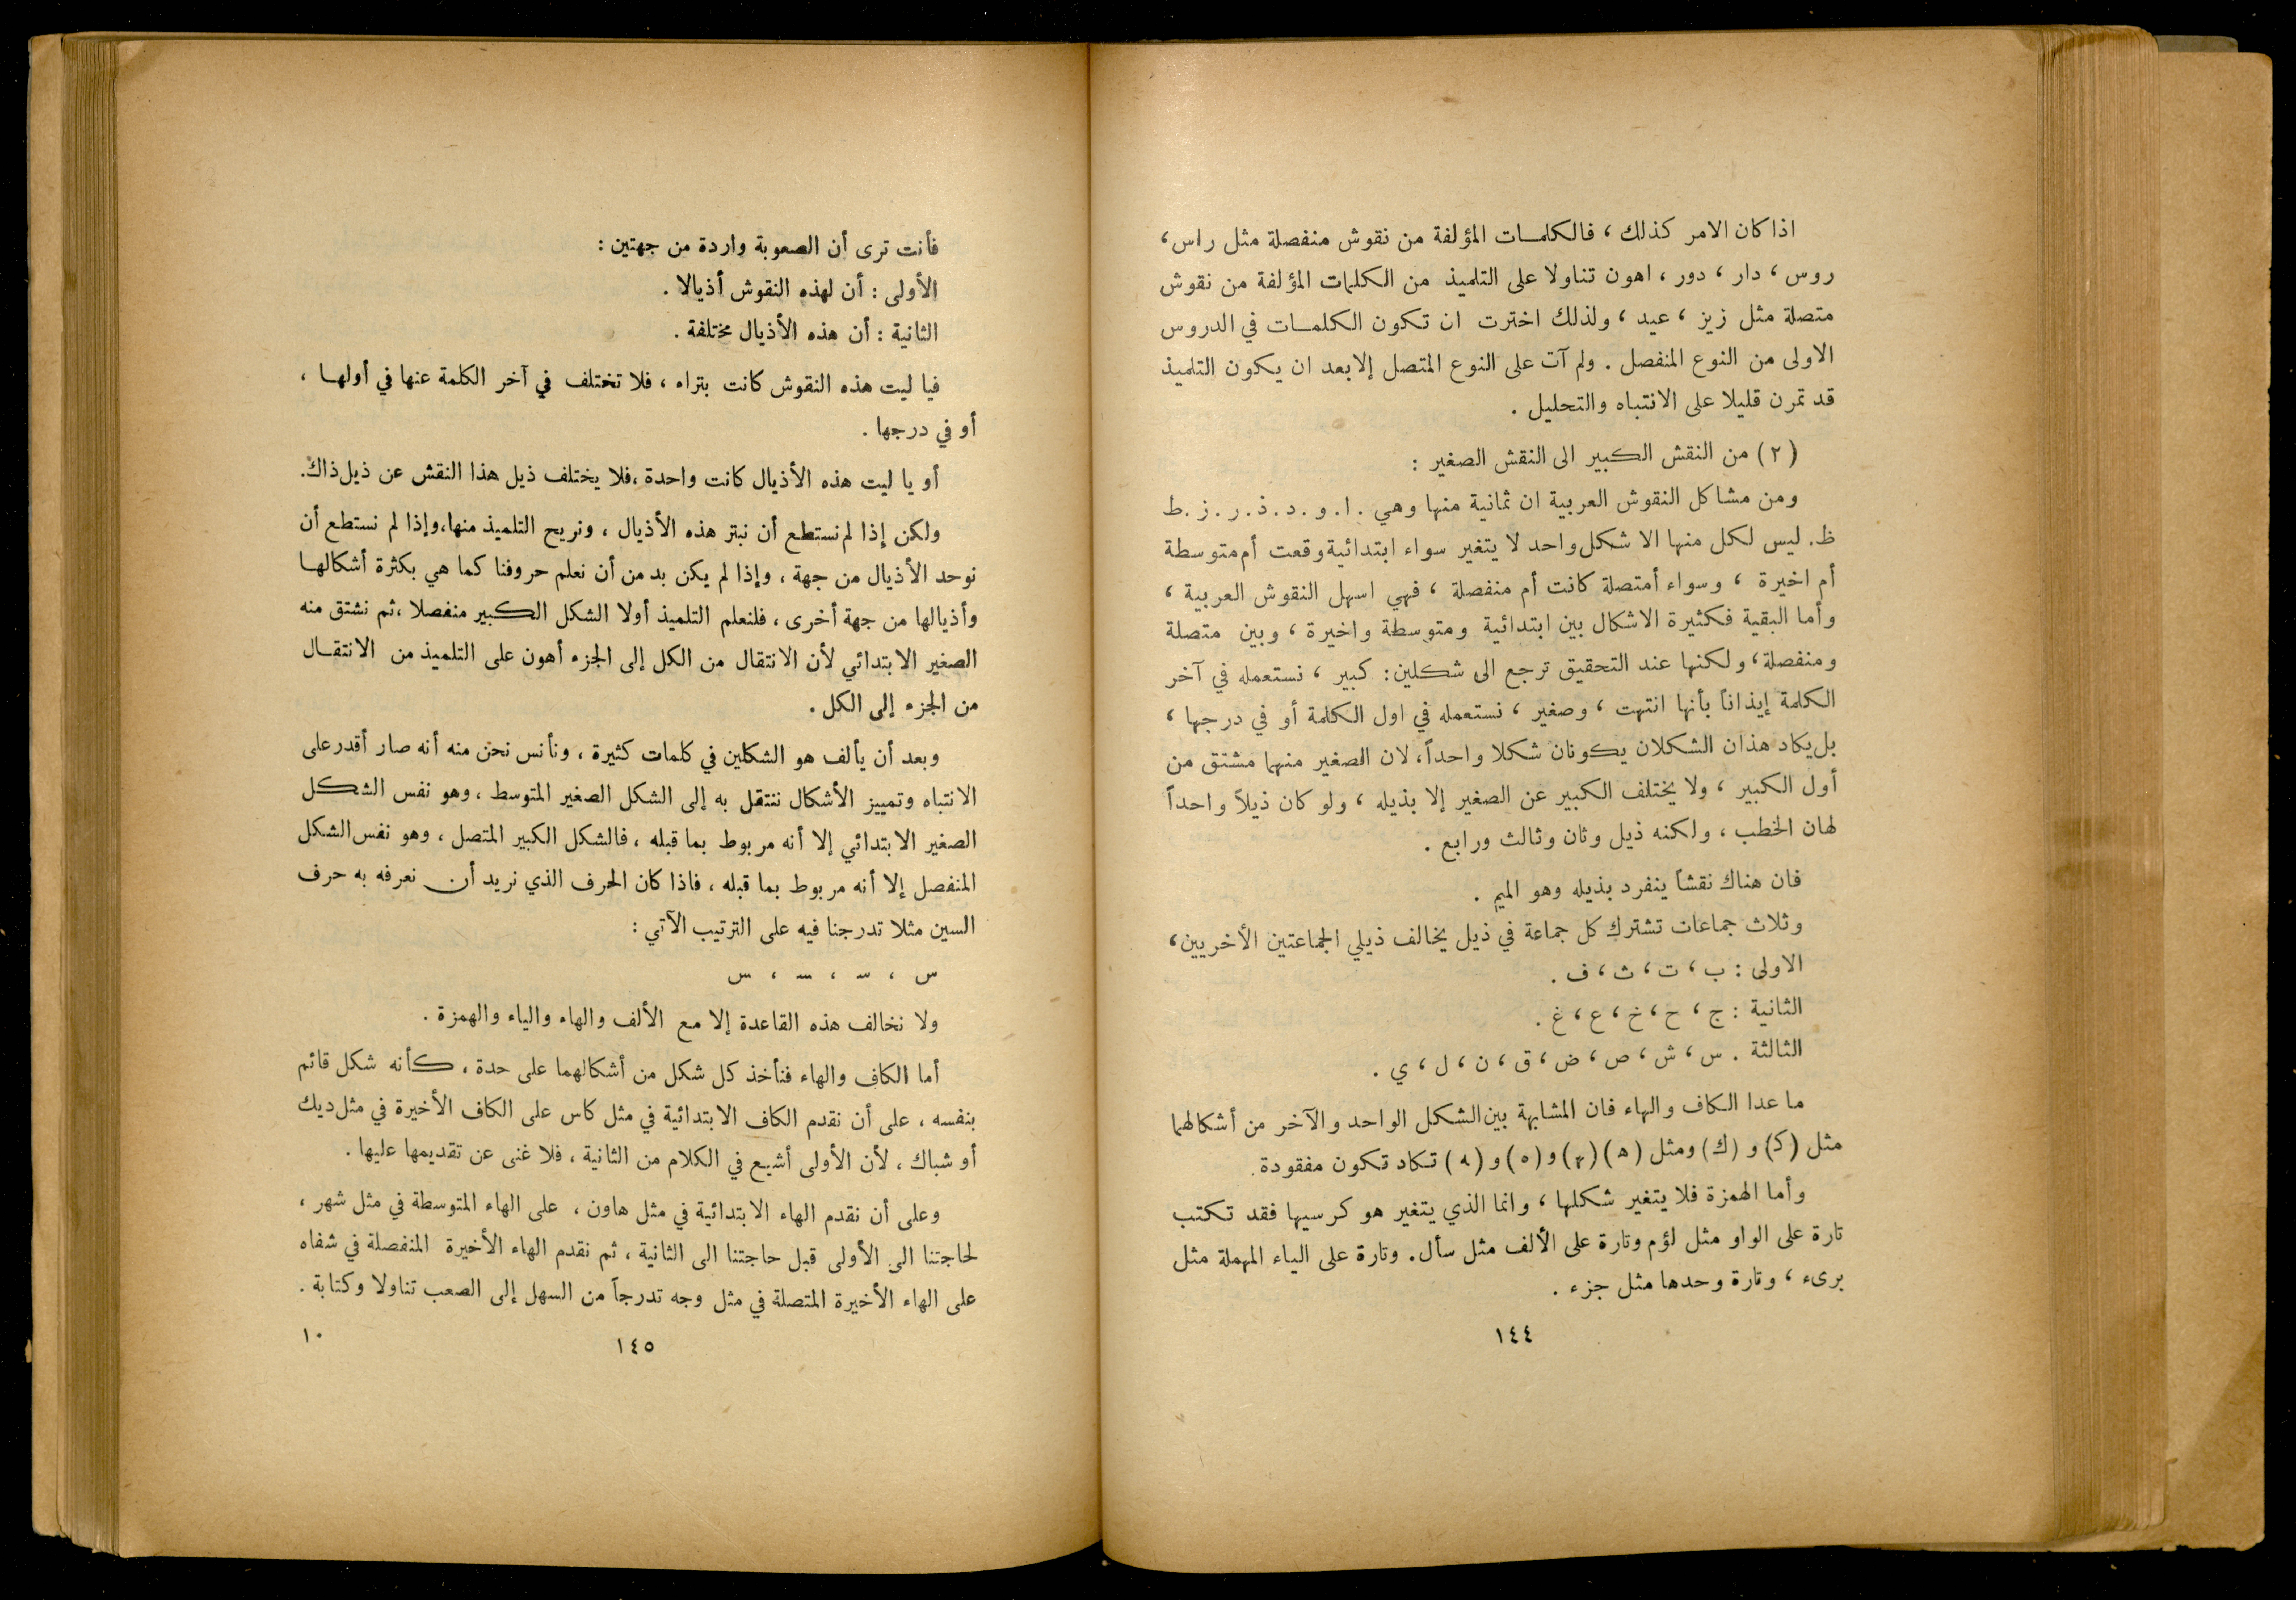 اذا كان الامر كذلك ، فالكلمات المؤلفة من نقوش منفصلة مثل راس ،
روس ، دار ، دور ، اهون تناولا على التلميذ من الكلمات المؤلفة من نقوش
متصلة مثل زيز ، عيد ، ولذلك اخترت ان تكون الكلمات في الدروس
الاولى من النوع المنفصل . ولم آت على النوع المتصل إلا بعد ان يكون التلميذ
قد تمرن قليلا على الانتباه والتحليل .
(٢) من النقش الكبير الى النقش الصغير :
ومن مشاكل النقوش العربية ان ثمانية منها وهي . ا . و . د . ذ . ر . ز . ط
ظ . ليس لكل منها الا شكل واحد لا يتغير سواء ابتدائية وقعت أم متوسطة
أم اخيرة ، وسواء أمتصلة كانت أم منفصلة ، فهي اسهل النقوش العربية ،
وأما البقية فكثيرة الاشكال بين ابتدائية ومتوسطة واخيرة ، وبين متصلة
ومنفصلة ، ولكنها عند التحقيق ترجع الى شكلين : كبير ، نستعمله في آخر
الكلمة إيذاناً بأنها انتهت ، وصغير ، نستعمله في اول الكلمة أو في درجها ،
بل يكاد هذان الشكلان يكونان شكلا واحداً ، لان الصغير منهما مشتق من
أول الكبير ، ولا يختلف الكبير عن الصغير إلا بذيله ، ولو كان ذيلاً واحداً
لهان الخطب ، ولكنه ذيل وثان وثالث ورابع .
فان هناك نقشاً ينفرد بذيله وهو الميم .
وثلاث جماعات تشترك كل جماعة في ذيل يخالف ذيلي الجماعتين الأخريين ،
الاولى : ب ، ت ، ث ، ف .
الثانية : ج ، ح ، خ ، ع ، غ .
الثالثة . س ، ش ، ص ، ض ، ق ، ن ، ل ، ي .
ما عدا الكاف والهاء فان المشابهة بين الشكل الواحد والآخر من أشكالهما
مثل (كـ) و (ك) ومثل (هـ) (ـهـ) و (ه) و (ـه) تكاد تكون مفقودة .
وأما الهمزة فلا يتغير شكلها ، وانما الذي يتغير هو كرسيها فقد تكتب
تارة على الواو مثل لؤم وتارة على الألف مثل سأل . وتارة على الياء المهملة مثل
برىء ، وتارة وحدها مثل جزء .
١٤٤
فأنت ترى أن الصعوبة واردة من جهتين :
الأولى : أن لهذه النقوش أذيالا .
الثانية : أن هذه الأذيال مختلفة .
فيا ليت هذه النقوش كانت بتراء ، فلا تختلف في آخر الكلمة عنها في أولها ،
أو في درجها .
أو يا ليت هذه الأذيال كانت واحدة ، فلا يختلف ذيل هذا النقش عن ذيل ذاك .
ولكن إذا لم نستطع أن نبتر هذه الأذيال ، ونريح التلميذ منها ، وإذا لم نستطع أن
نوحد الأذيال من جهة ، وإذا لم يكن بد من أن نعلم حروفنا كما هي بكثرة أشكالها
وأذيالها من جهة أخرى ، فلنعلم التلميذ أولا الشكل الكبير منفصلا ، ثم نشتق منه
الصغير الابتدائي لأن الانتقال من الكل إلى الجزء أهون على التلميذ من الانتقال
من الجزء إلى الكل .
وبعد أن يألف هو الشكلين في كلمات كثيرة ، ونأنس نحن منه أنه صار أقدر على
الانتباه وتمييز الأشكال ننتقل به إلى الشكل الصغير المتوسط ، وهو نفس الشكل
الصغير الابتدائي إلا أنه مربوط بما قبله ، فالشكل الكبير المتصل ، وهو نفس الشكل
المنفصل إلا أنه مربوط بما قبله ، فاذا كان الحرف الذي نريد أن نعرفه به حرف
السين مثلا تدرجنا فيه على الترتيب الآتي :
س ، سـ ، ـسـ ، ـس
ولا نخالف هذه القاعدة إلا مع الألف والهاء والياء والهمزة .
أما الكاف والهاء فنأخذ كل شكل من أشكالهما على حدة ، كأنه شكل قائم
بنفسه ، على أن نقدم الكاف الابتدائية في مثل كاس على الكاف الأخيرة في مثل ديك
أو شباك ، لأن الأولى أشيع في الكلام من الثانية ، فلا غنى عن تقديمها عليها .
وعلى أن نقدم الهاء الابتدائية في مثل هاون ، على الهاء المتوسطة في مثل شهر ،
لحاجتنا الى الأولى قبل حاجتنا الى الثانية ، ثم نقدم الهاء الأخيرة المنفصلة في شفاه
على الهاء الأخيرة المتصلة في مثل وجه تدرجاً من السهل إلى الصعب تناولا وكتابة .
١٤٥
١٠